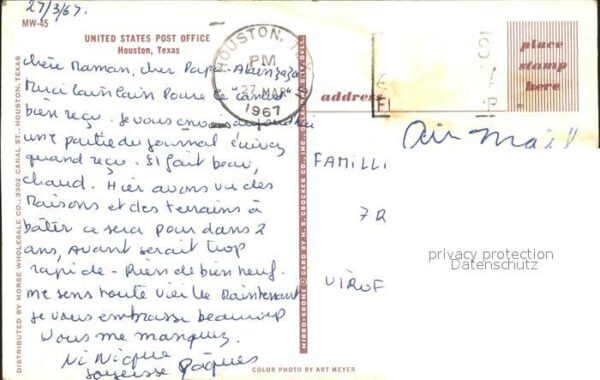 27/3/67.
MW-45
UNITED STATES POST OFFICE
Houston, Texas
Chère Maman, cher Papa
Merci
bien reçu. Je vous envoie
une partie du journal
quand reçu. Il fait beau,
chaud. Hier avons vu des
maisons et des terrains à
bâter ce sera pour dans 2
ans, avant serait trop
rapide - Rien de bien neuf.
me sens toute vieille maintenant
je vous embrasse beaucoup
vous me manquez.
Joyeuses Pâques
DISTRIBUTED BY MORSE WHOLESALE CO., 3302 CANAL ST., HOUSTON, TEXAS
MIRRO-KROME CARD BY H. S. CROCKER CO., INC.
HOUSTON, TEX
PM
27 MAR
1967
address
place
stamp
here
Air Mail
FAMILL
7 R
VIROF
privacy protection
Datenschutz
COLOR PHOTO BY ART MEYER